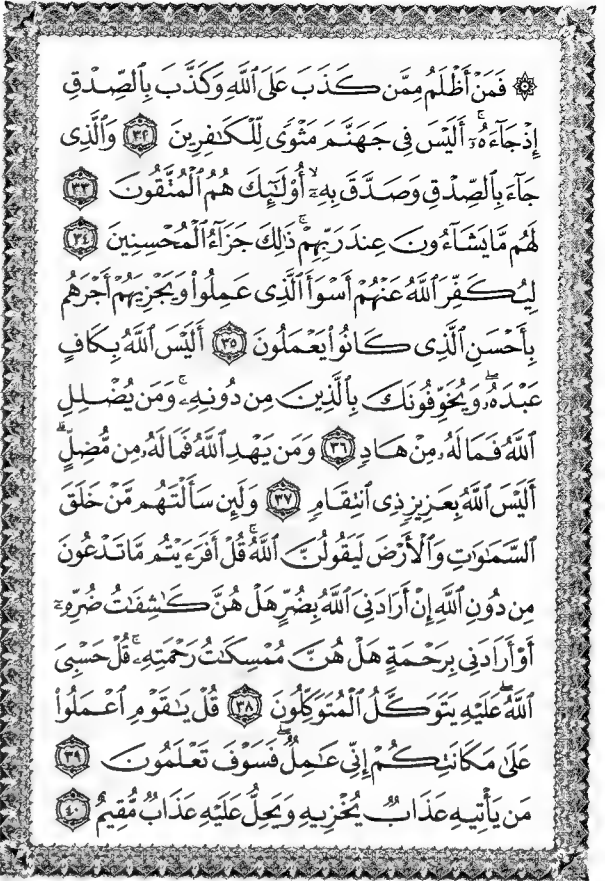 ۞ فَمَنْ أَظْلَمُ مِمَّن كَذَبَ عَلَى ٱللَّهِ وَكَذَّبَ بِٱلصِّدْقِ
إِذْ جَآءَهُۥٓۚ أَلَيْسَ فِى جَهَنَّمَ مَثْوًى لِّلْكَـٰفِرِينَ ٣٢ وَٱلَّذِى
جَآءَ بِٱلصِّدْقِ وَصَدَّقَ بِهِۦٓۙ أُو۟لَـٰٓئِكَ هُمُ ٱلْمُتَّقُونَ ٣٣
لَهُم مَّا يَشَآءُونَ عِندَ رَبِّهِمْۚ ذَٰلِكَ جَزَآءُ ٱلْمُحْسِنِينَ ٣٤
لِيُكَفِّرَ ٱللَّهُ عَنْهُمْ أَسْوَأَ ٱلَّذِى عَمِلُوا۟ وَيَجْزِيَهُمْ أَجْرَهُم
بِأَحْسَنِ ٱلَّذِى كَانُوا۟ يَعْمَلُونَ ٣٥ أَلَيْسَ ٱللَّهُ بِكَافٍ
عَبْدَهُۥۖ وَيُخَوِّفُونَكَ بِٱلَّذِينَ مِن دُونِهِۦۚ وَمَن يُضْلِلِ
ٱللَّهُ فَمَا لَهُۥ مِنْ هَادٍ ٣٦ وَمَن يَهْدِ ٱللَّهُ فَمَا لَهُۥ مِن مُّضِلٍّۗ
أَلَيْسَ ٱللَّهُ بِعَزِيزٍ ذِى ٱنتِقَامٍ ٣٧ وَلَئِن سَأَلْتَهُم مَّنْ خَلَقَ
ٱلسَّمَـٰوَٰتِ وَٱلْأَرْضَ لَيَقُولُنَّ ٱللَّهُۚ قُلْ أَفَرَءَيْتُم مَّا تَدْعُونَ
مِن دُونِ ٱللَّهِ إِنْ أَرَادَنِىَ ٱللَّهُ بِضُرٍّ هَلْ هُنَّ كَـٰشِفَـٰتُ ضُرِّهِۦٓ
أَوْ أَرَادَنِى بِرَحْمَةٍ هَلْ هُنَّ مُمْسِكَـٰتُ رَحْمَتِهِۦۚ قُلْ حَسْبِىَ
ٱللَّهُۖ عَلَيْهِ يَتَوَكَّلُ ٱلْمُتَوَكِّلُونَ ٣٨ قُلْ يَـٰقَوْمِ ٱعْمَلُوا۟
عَلَىٰ مَكَانَتِكُمْ إِنِّى عَـٰمِلٌۖ فَسَوْفَ تَعْلَمُونَ ٣٩
مَن يَأْتِيهِ عَذَابٌ يُخْزِيهِ وَيَحِلُّ عَلَيْهِ عَذَابٌ مُّقِيمٌ ٤٠